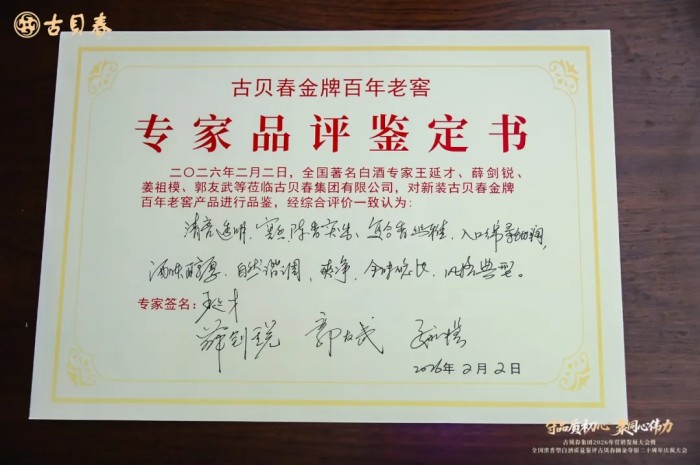 古贝春
古贝春金牌百年老窖
专家品评鉴定书
二〇二六年二月二日，全国著名白酒专家王延才、薛剑锐、
姜祖模、郭友武等莅临古贝春集团有限公司，对新装古贝春金牌
百年老窖产品进行品鉴，经综合评价一致认为：
清亮透明，窖香、陈香突出、复合香幽雅，入口绵柔细润，
酒体醇厚、自然谐调、爽净、余味悠长，风格典型。
专家签名：
薛剑锐 郭友武 姜祖模
2026年2月2日
守品质初心 聚同心伟力
古贝春集团2026年营销发展大会暨
全国浓香型白酒质量鉴评古贝春摘金夺银二十周年庆祝大会